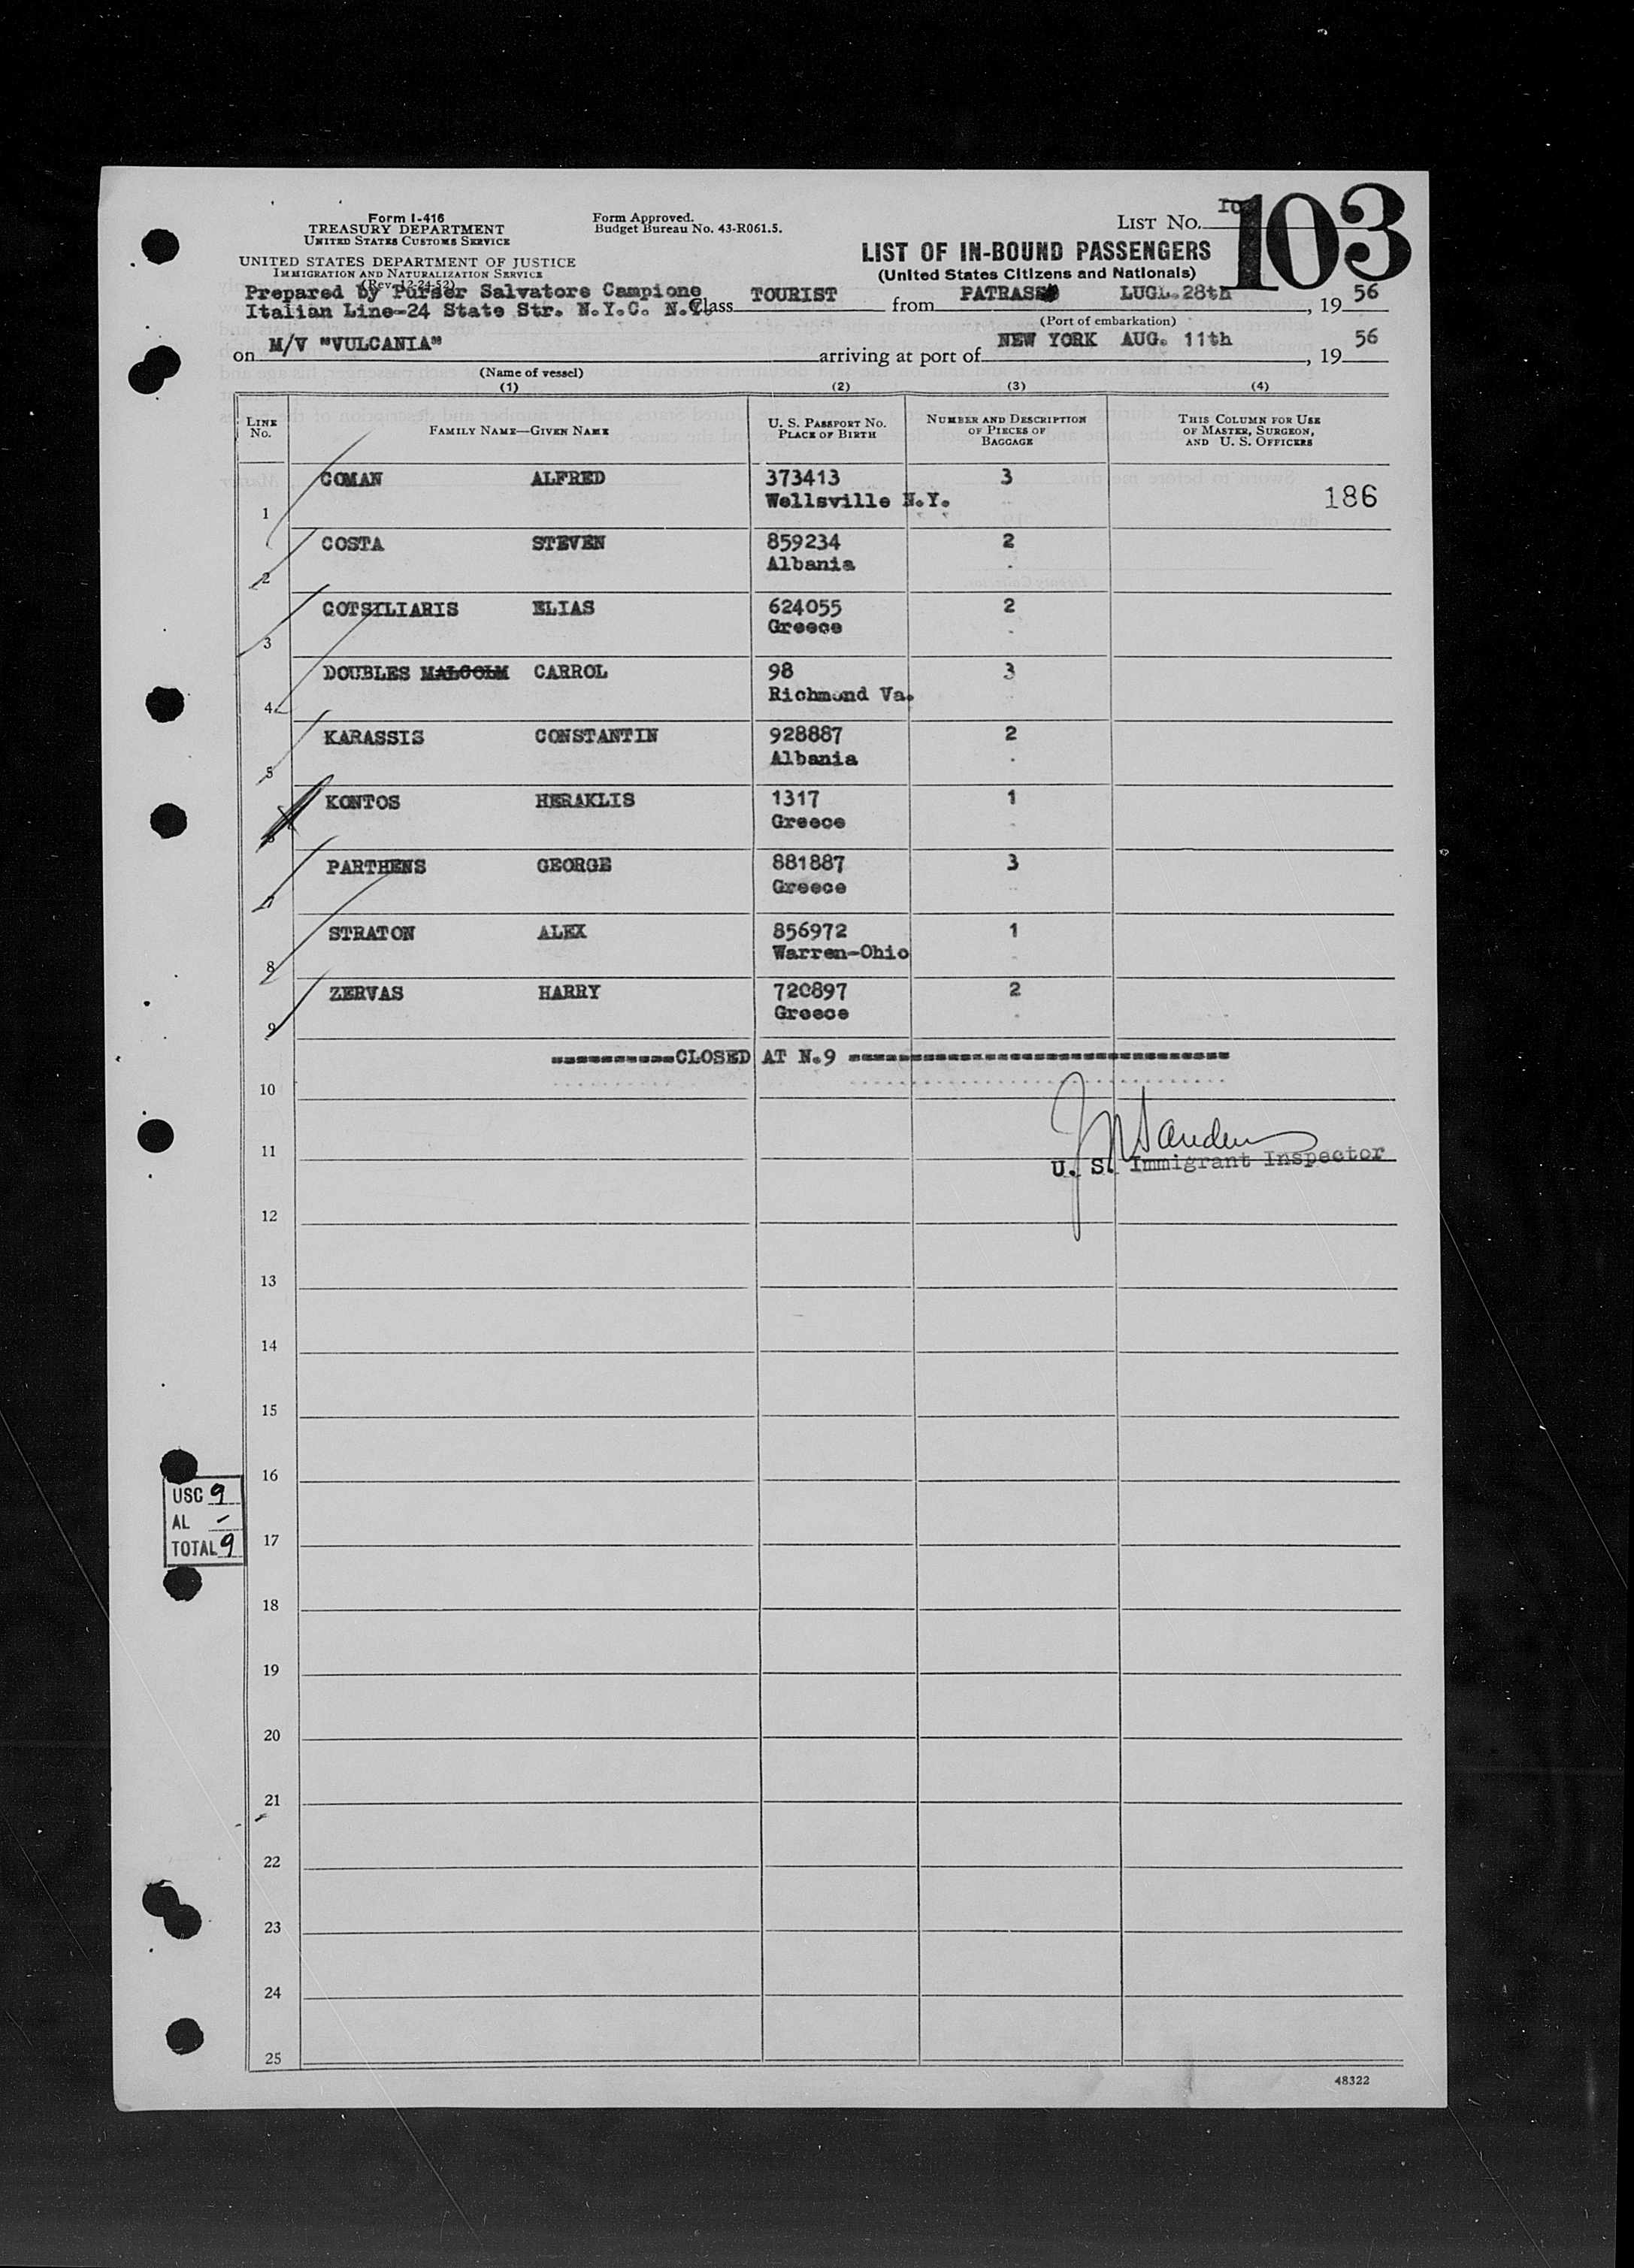 Form I-416
TREASURY DEPARTMENT
UNITED STATES CUSTOMS SERVICE
UNITED STATES DEPARTMENT OF JUSTICE
IMMIGRATION AND NATURALIZATION SERVICE
(Rev. 12-24-52)
Form Approved.
Budget Bureau No. 43-R061.5.
LIST NO.
103
LIST OF IN-BOUND PASSENGERS
(United States Citizens and Nationals)
Prepared by Purser Salvatore Campione
Italian Line-24 State Str. N.Y.C. N.Y.
Class TOURIST from PATRASS LUGL.28th, 1956
(Port of embarkation)
on M/V "VULCANIA" arriving at port of NEW YORK AUG. 11th, 1956
(Name of vessel)
(1) (2) (3) (4)
LINE No. FAMILY NAME—GIVEN NAME U. S. PASSPORT NO. PLACE OF BIRTH NUMBER AND DESCRIPTION OF PIECES OF BAGGAGE THIS COLUMN FOR USE OF MASTER, SURGEON, AND U. S. OFFICERS
1 COMAN ALFRED 373413 3
Wellsville N.Y. 186
2 COSTA STEVEN 859234 2
Albania
3 COTSILIARIS ELIAS 624055 2
Greece
4 DOUBLES MALCOLM CARROL 98 3
Richmond Va.
5 KARASSIS CONSTANTIN 928887 2
Albania
6 KONTOS HERAKLIS 1317 1
Greece
7 PARTHENS GEORGE 881887 3
Greece
8 STRATON ALEX 856972 1
Warren-Ohio
9 ZERVAS HARRY 720897 2
Greece
==========CLOSED AT N.9 ==============================
10
11
U. S. Immigrant Inspector
12
13
14
15
16
USC 9
AL -
TOTAL 9
17
18
19
20
21
22
23
24
25
48322